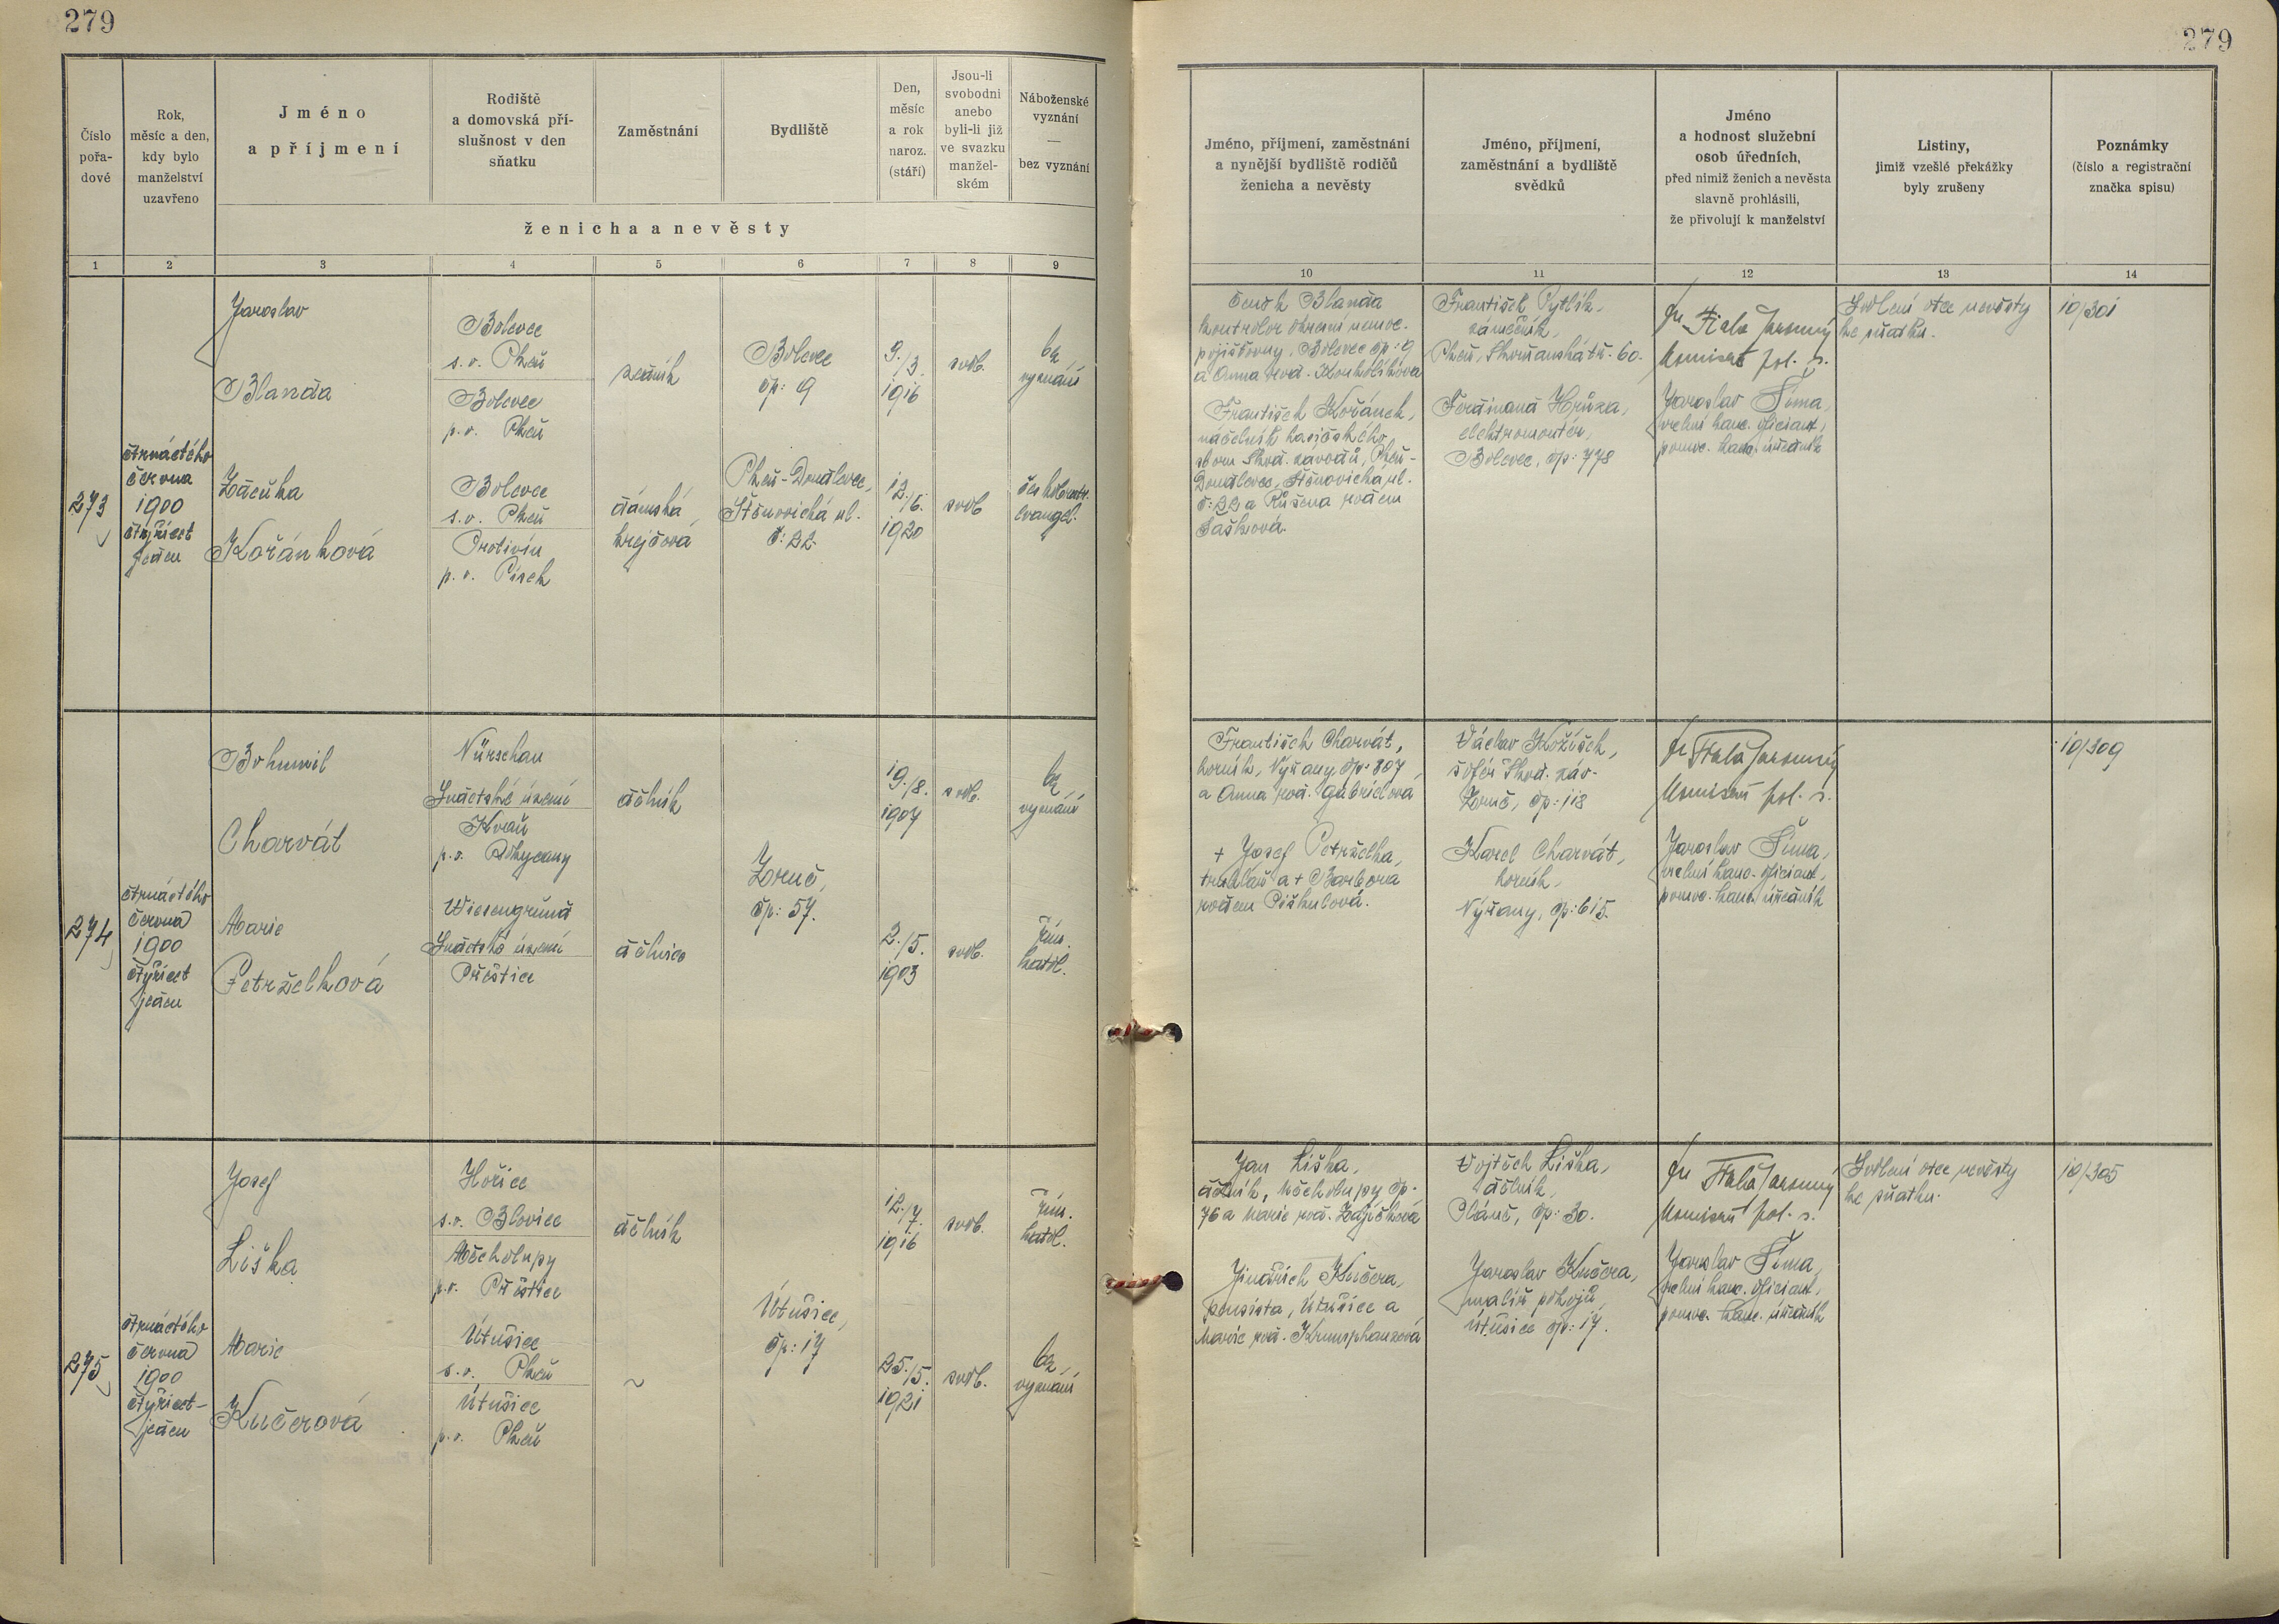 279
279
Číslo
pořa-
dové
Rok,
měsíc a den,
kdy bylo
manželství
uzavřeno
Jméno
a příjmení
Rodiště
a domovská pří-
slušnost v den
sňatku
Zaměstnání
Bydliště
Den,
měsíc
a rok
naroz.
(stáří)
Jsou-li
svobodni
anebo
byli-li již
ve svazku
manžel-
ském
Náboženské
vyznání
—
bez vyznání
ženicha a nevěsty
Jméno, příjmení, zaměstnání
a nynější bydliště rodičů
ženicha a nevěsty
Jméno, příjmení,
zaměstnání a bydliště
svědků
Jméno
a hodnost služební
osob úředních,
před nimiž ženich a nevěsta
slavně prohlásili,
že přivolují k manželství
Listiny,
jimiž vzešlé překážky
byly zrušeny
Poznámky
(číslo a registrační
značka spisu)
1 2 3 4 5 6 7 8 9
10 11 12 13 14
273
čtrnáctého
června
1900
čtyřicet
jeden
Jaroslav
Blanda
Zdeňka
Kořánková
Bolevec
s.o. Plzeň
Bolevec
p.o. Plzeň
Bolevec
s.o. Plzeň
Protivín
p.o. Písek
zedník
dámská
krejčová
Bolevec
čp: 9
Plzeň-Doudlevce,
Štěnovická ul.
č: 22
9./3.
1916
12./6.
1920
svob.
svob
bez
vyznání
českobratr.
evangel.
Čeněk Blanda
kontrolor okresní nemoc.
pojišťovny, Bolevec čp: 9
a Anna rod.
František Kořánek,
náčelník hasičského
sboru Škod. závodů, Plzeň-
Doudlevce, Štěnovická ul.
č: 22 a Růžena rodem
Sašková.
František Pytlík,
zámečník,
Plzeň, Skvrňanská tř. 60.
Ferdinand Hrůza,
elektromontér,
Bolevec, čp: 778
Dr Fiala Jaromír
komisař pol. s.
Jaroslav Šíma,
vrchní kanc. oficiant,
pomoc. kanc. úředník
Svolení otce nevěsty
ke sňatku.
10/301
274
čtrnáctého
června
1900
čtyřicet
jeden
Bohumil
Charvát
Marie
Petrželková
Nürschan
Sudetské území
Kvaň
p.o. Rokycany
Wiesengrund
Sudetské území
Přeštice
dělník
dělnice
Zruč,
čp: 57.
19./8.
1907
2./5.
1903
svob.
svob.
bez
vyznání
řím.
katol.
František Charvát,
horník, Nýřany, čp: 807
a Anna rod. Gabrielová
+ Josef Petrželka,
truhlář a + Barbora
rodem Piškulová.
Václav Kožíšek,
šofér Škod. záv.
Zruč, čp: 118
Karel Charvát,
horník,
Nýřany, čp: 615.
Dr Fiala Jaromír
komisař pol. s.
Jaroslav Šíma,
vrchní kanc. oficiant,
pomoc. kanc. úředník
10/309
275
čtrnáctého
června
1900
čtyřicet-
jeden
Josef
Liška
Marie
Kučerová
Hořice
s.o. Blovice
Měcholupy
p.o. Přeštice
Útušice
s.o. Plzeň
Útušice
p.o. Plzeň
dělník
~
Útušice,
čp: 17
12./7.
1916
25./5.
1921
svob.
svob.
řím.
katol.
bez
vyznání
Jan Liška,
dělník, Měcholupy čp.
76 a Marie rod. Zajíčková
Jindřich Kučera,
pensista, Útušice a
Marie rod. Krumphanzlová
Vojtěch Liška,
dělník,
Pláně, čp: 30.
Jaroslav Kučera,
malíř pokojů,
Útušice čp: 17.
Dr Fiala Jaromír
komisař pol. s.
Jaroslav Šíma,
vrchní kanc. oficiant,
pomoc. kanc. úředník
Svolení otce nevěsty
ke sňatku.
10/305